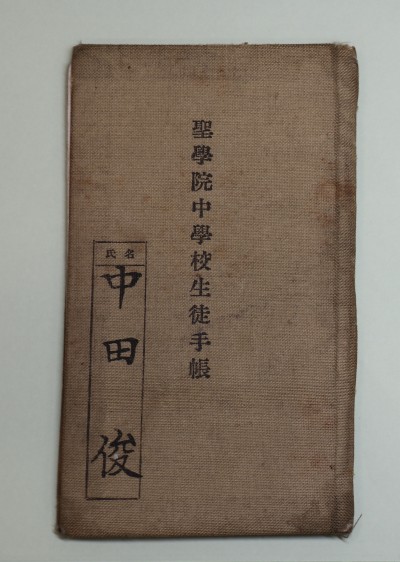 聖學院中學校生徒手帳
氏名
中田俊